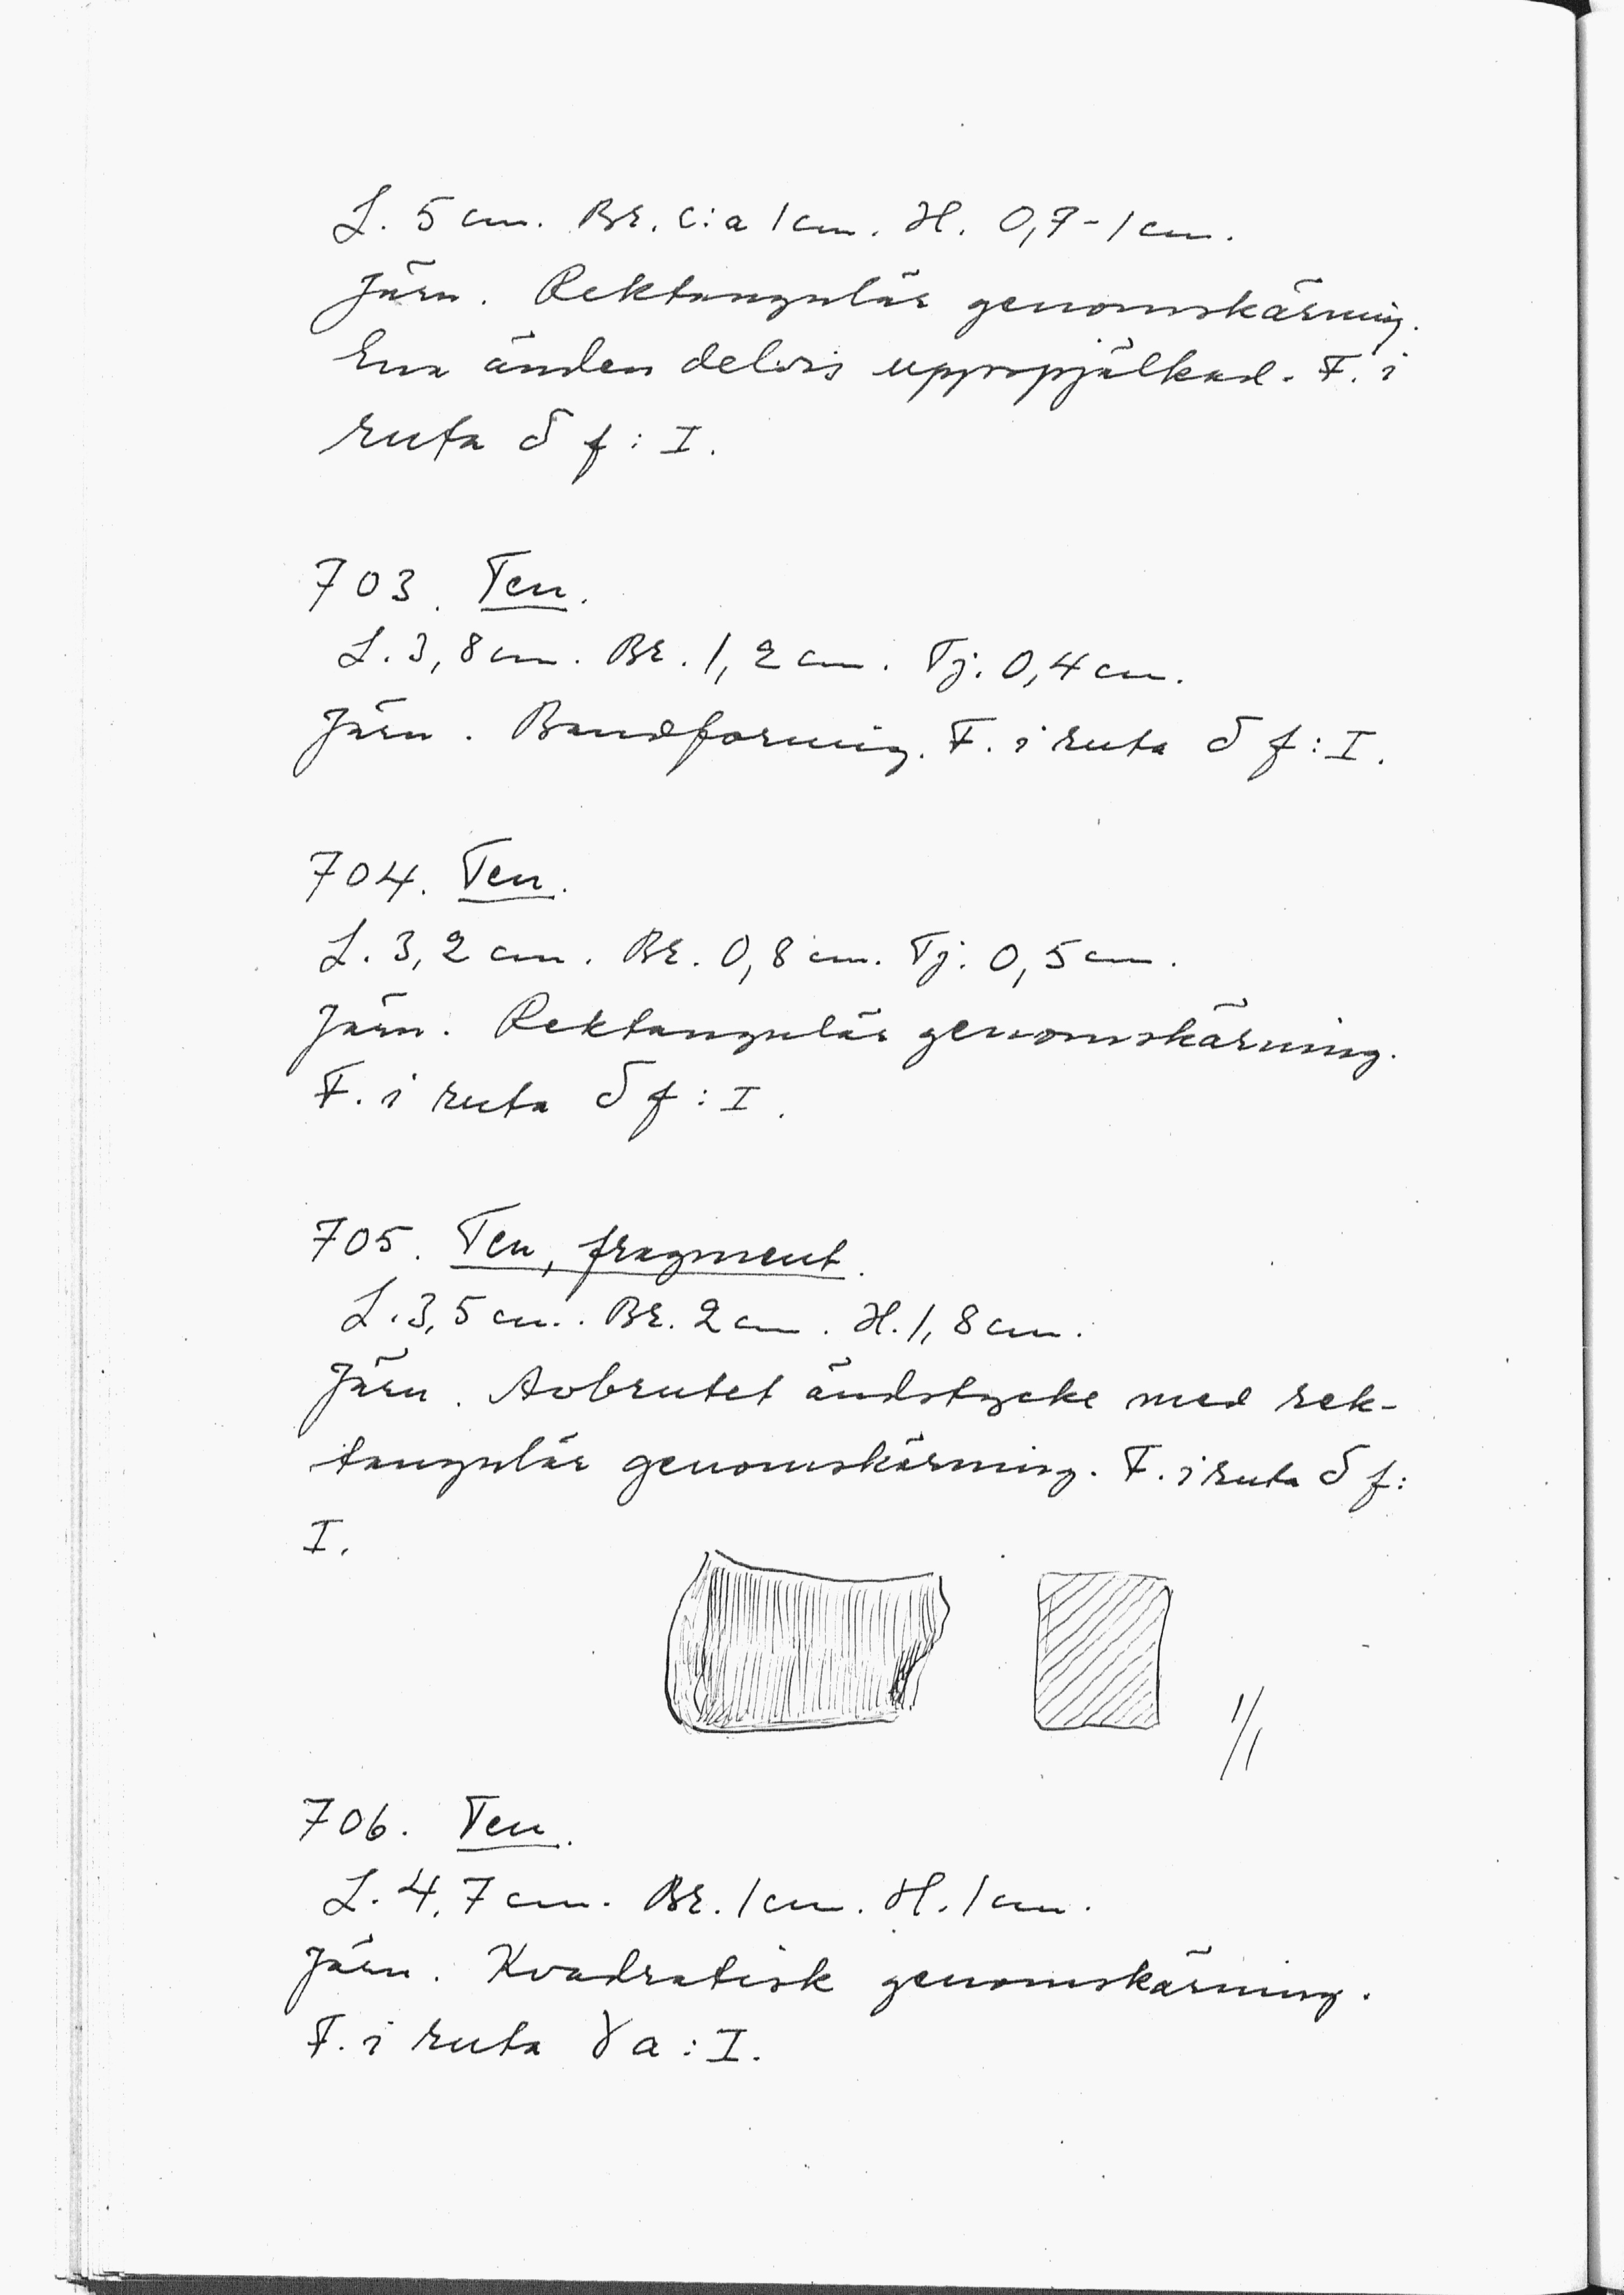 L. 5 cm. Br. c:a 1 cm. H. 0,7-1 cm.
Järn. Rektangulär genomskärning.
Ena änden delvis uppspjälkad. F. i
ruta δ f : I.
703. Ten.
L. 3,8 cm. Br. 1,2 cm. Tj. 0,4 cm.
Järn. Bandformig. F. i ruta δ f : I.
704. Ten.
L. 3,2 cm. Br. 0,8 cm. Tj. 0,5 cm.
Järn. Rektangulär genomskärning.
F. i ruta δ f : I.
705. Ten, fragment.
L. 3,5 cm. Br. 2 cm. H. 1,8 cm.
Järn. Avbrutet ändstycke med rek-
tangulär genomskärning. F. i ruta δ f :
I.
1/1
706. Ten.
L. 4,7 cm. Br. 1 cm. H. 1 cm.
Järn. Kvadratisk genomskärning.
F. i ruta γ a : I.